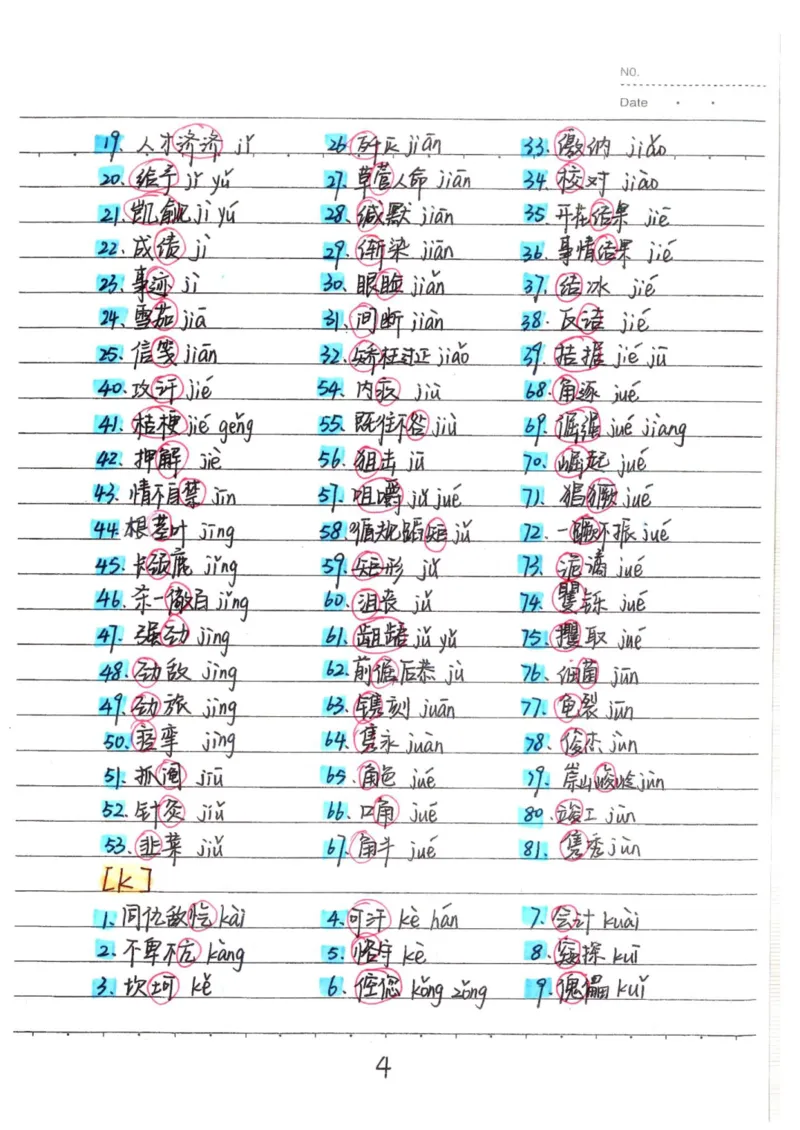 NO.
Date
19. 人才济济 jǐ 26. 歼灭 jiān 33. 缴纳 jiǎo
20. 给予 jǐ yǔ 27. 草菅人命 jiān 34. 校对 jiào
21. 凯觎 jì yú 28. 缄默 jiān 35. 开花结果 jiē
22. 成绩 jì 29. 渐染 jiān 36. 事情结果 jié
23. 事迹 jì 30. 眼睑 jiǎn 37. 结冰 jié
24. 雪茄 jiā 31. 间断 jiàn 38. 反诘 jié
25. 信笺 jiān 32. 矫枉过正 jiǎo 39. 拮据 jié jū
40. 攻讦 jié 54. 内疚 jiù 68. 角逐 jué
41. 桔梗 jié gěng 55. 既往不咎 jiù 69. 倔强 jué jiàng
42. 押解 jiè 56. 狙击 jū 70. 崛起 jué
43. 情不自禁 jīn 57. 咀嚼 jǔ jué 71. 猖獗 jué
44. 根茎叶 jīng 58. 循规蹈矩 jǔ 72. 一蹶不振 jué
45. 长颈鹿 jǐng 59. 矩形 jǔ 73. 诡谲 jué
46. 杀一儆百 jǐng 60. 沮丧 jǔ 74. 矍铄 jué
47. 强劲 jìng 61. 龃龉 jǔ yǔ 75. 攫取 jué
48. 劲敌 jìng 62. 前倨后恭 jù 76. 细菌 jūn
49. 劲旅 jìng 63. 镌刻 juān 77. 龟裂 jūn
50. 痉挛 jìng 64. 隽永 juàn 78. 俊杰 jùn
51. 抓阄 jiū 65. 角色 jué 79. 崇山峻岭 jùn
52. 针灸 jiǔ 66. 口角 jué 80. 竣工 jùn
53. 韭菜 jiǔ 67. 角斗 jué 81. 隽秀 jùn
[k]
1. 同仇敌忾 kài 4. 可汗 kè hán 7. 会计 kuài
2. 不卑不亢 kàng 5. 恪守 kè 8. 窥探 kuī
3. 坎坷 kě 6. 倥偬 kǒng zǒng 9. 傀儡 kuǐ
4